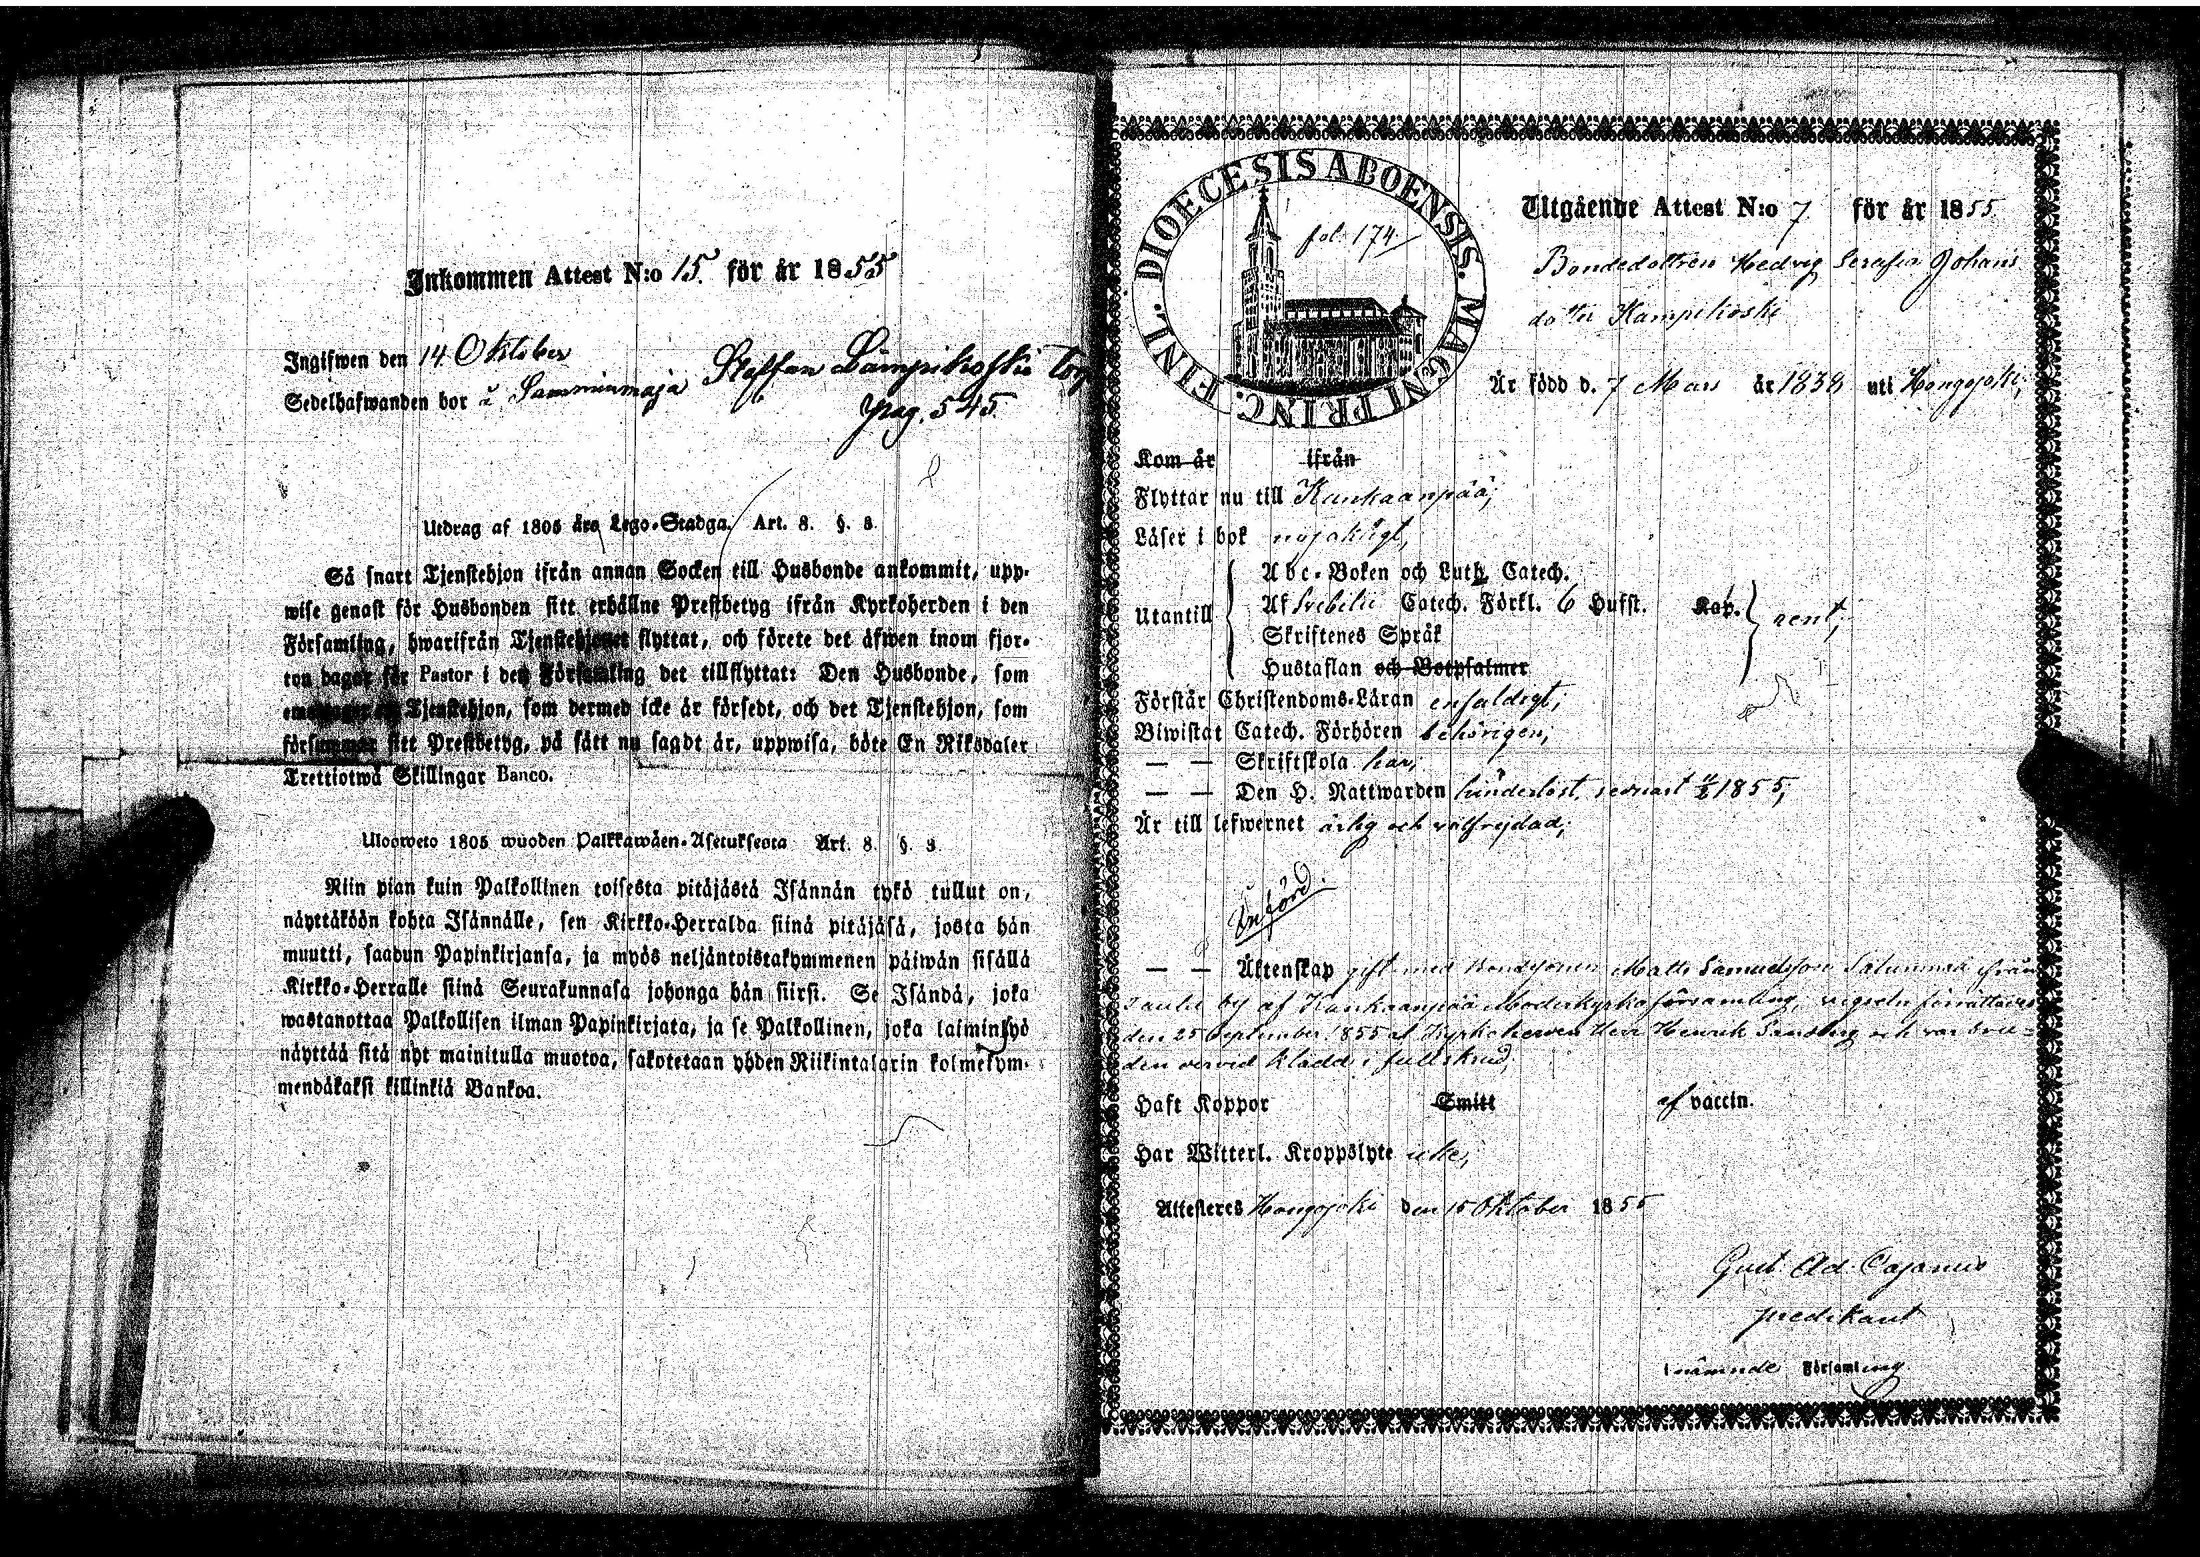 Inkommen Attest N:o 15. för år 1855
Ingifwen den 14 Oktober
Sedelhafwanden bor å Samminmaja Staffan Lampikoski torp
pag. 545.
Utdrag af 1805 års Lego-Stadga. Art. 8. §. 3.
Så snart Tjenstehjon ifrån annan Socken till Husbonde ankommit, upp-
wise genast för Husbonden sitt erhållne Prestbetyg ifrån Kyrkoherden i den
Församling, hwarifrån Tjenstehjonet flyttat, och förete det äfwen inom fjor-
ton dagar för Pastor i den Församling det tillflyttat: Den Husbonde, som
emottager ett Tjenstehjon, som dermed icke är försedt, och det Tjenstehjon, som
försummar sitt Prestbetyg, på sätt nu sagdt är, uppwisa, böte En Riksdaler
Trettiotwå Skillingar Banco.
Uloosweto 1805 wuoden Palkkawäen-Asetuksesta Art. 8. §. 3.
Niin pian kuin Palkollinen toisesta pitäjästä Isännän tykö tullut on,
näyttäköön kohta Isännälle, sen Kirkko-Herralda siinä pitäjäsä, josta hän
muutti, saadun Papinkirjansa, ja myös neljäntoistakymmenen päiwän sisällä
Kirkko-Herralle siinä Seurakunnasa johonga hän siirsi. Se Isändä, joka
wastanottaa Palkollisen ilman Papinkirjata, ja se Palkollinen, joka laiminlyö
näyttää sitä nyt mainitulla muotoa, sakotetaan yhden Riikintalarin kolmekym-
mendäkaksi killinkiä Bankoa.
DIOECESIS ABOENSIS. MAGNI PRINC. FINL.
fol. 174
Utgående Attest N:o 7 för år 1855
Bondedottren Hedvig Serafia Johans
dotter Kampikoski
Är född d. 7 Mars år 1838 uti Hongojoki,
Kom år ifrån
Flyttar nu till Kankaanpää,
Läser i bok nöjaktigt,
Utantill
Abc-Boken och Luth. Catech.
Af Svebilii Catech. Förkl. 6 Hufst. Kap.
Skriftenes Språk
Hustaflan och Botpsalmer
rent,
Förstår Christendoms-Läran enfaldigt,
Biwistat Catech. Förhören behörigen,
— — Skriftskola har,
— — Den H. Nattwarden hinderlöst, senast 1855,
Är till lefwernet ärlig och välfrejdad,
Införd.
— — Äktenskap gift med Bondsonen Matts Samuelsson ifrån
by af Kankaanpää Moderkyrkoförsamling, vigseln förrättades
den 25 September 1855 af Kyrkoherden Herr Henrik Sandberg och var bru-
den vervid klädd i full skrud,
Haft Koppor Smitt af vaccin.
Har Witterl. Kroppslyte icke,
Attesteres Hongojoki den 15 Oktober 1855
Gust. Ad. Cajanus
predikant
i nämnde Församling